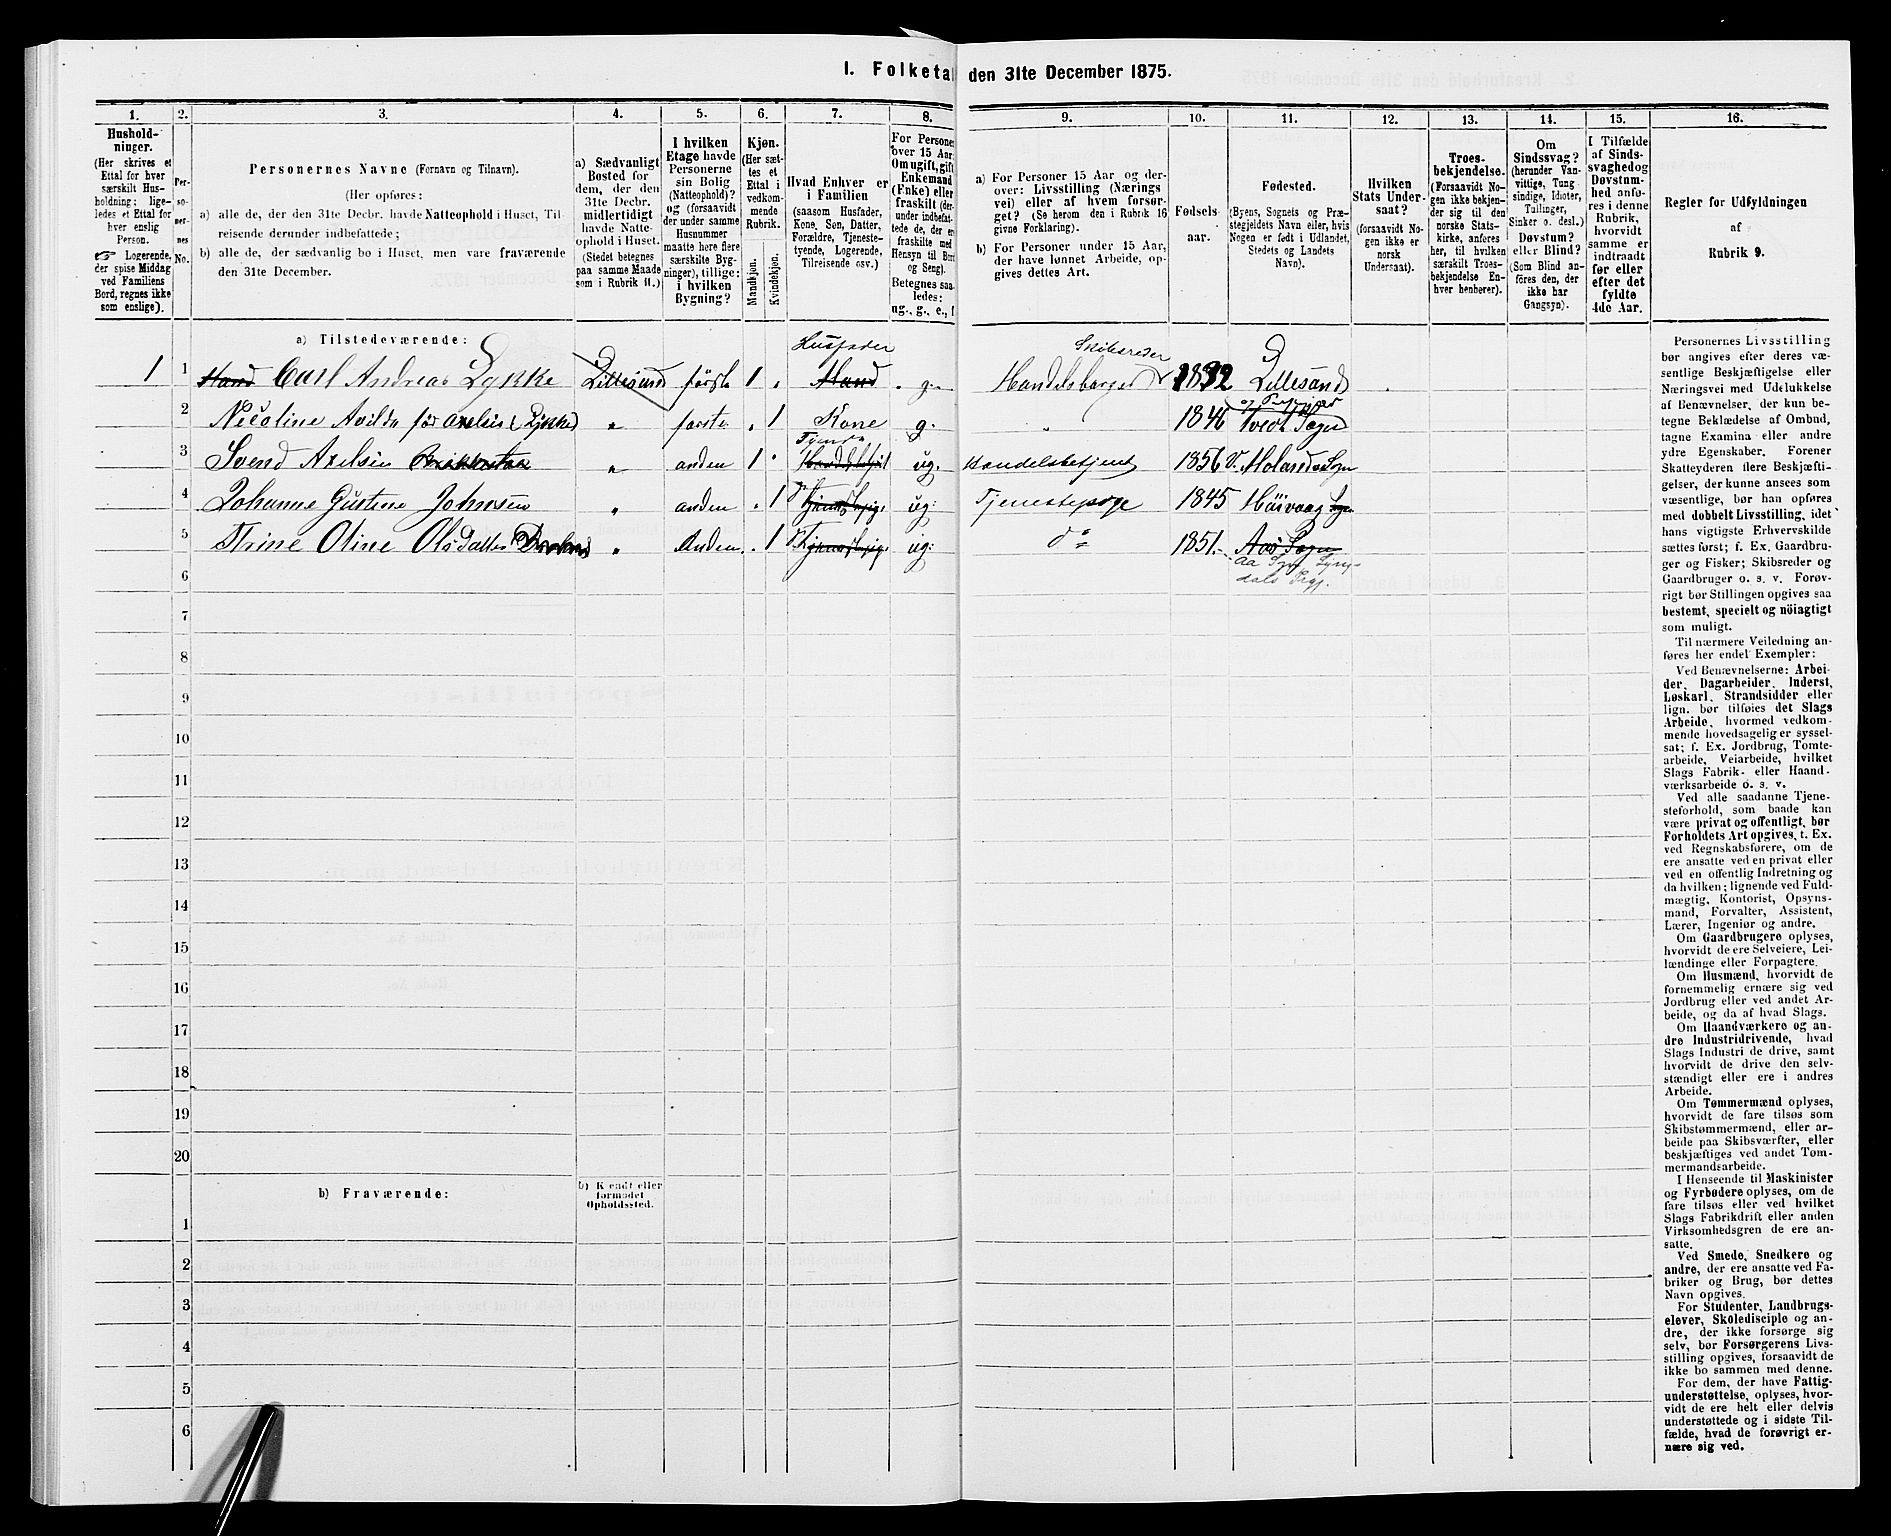 I. Folketal den 31te December 1875.
1. 2. 3. 4. 5. 6. 7. 8. 9. 10. 11. 12. 13. 14. 15. 16.
Hushold-
ninger.
(Her skrives et
Ettal for hver
særskilt Hus-
holdning; lige-
ledes et Ettal for
hver enslig
Person.
☞ Logerende,
der spise Middag
ved Familiens
Bord, regnes ikke
som enslige).
Per-
so-
ner-
nes
No.
Personernes Navne (Fornavn og Tilnavn).
(Her opføres:
a) alle de, der den 31te Decbr. havde Natteophold i Huset, Til-
reisende derunder indbefattede;
b) alle de, der sædvanlig bo i Huset, men vare fraværende
den 31te December.
a) Sædvanligt
Bosted for
dem, der den
31te Decbr.
midlertidigt
havde Natte-
ophold i Huset.
(Stedet betegnes
paa samme Maade
som i Rubrik 11.)
I hvilken
Etage havde
Personerne
sin Bolig
(Natteophold)?
og (forsaavidt
der under samme
Husnummer
maatte høre flere
særskilte Byg-
ninger), tillige:
i hvilken
Bygning?
Kjøn.
(Her sæt-
tes et
Ettal i
vedkom-
mende
Rubrik.
Mandkjøn.
Kvindekjøn.
Hvad Enhver er
i Familien
(saasom Husfader,
Kone, Søn, Datter,
Forældre, Tjeneste-
tyende, Logerende,
Tilreisende osv.)
For Persone
over 15 Aar:
Om ugift, gift
Enkemand
(Enke) eller
fraskilt (der-
under indbefat-
tede de, der er
fraskilte med
Hensyn til Bord
og Seng).
Betegnes saa-
ledes:
ug., g., e., f
a) For Personer 15 Aar og der-
over: Livsstilling (Nærings
vei) eller af hvem forsør-
get? (Se herom den i Rubrik 16
givne Forklaring).
b) For Personer under 15 Aar,
der have lønnet Arbeide, op-
gives dettes Art.
Fødsels-
aar.
Fødested.
(Byens, Sognets og Præ-
stegjeldets Navn eller, hvis
Nogen er født i Udlandet,
Stedets og Landets
Navn).
Hvilken
Stats Under-
saat?
(forsaavidt No-
gen ikke er
norsk
Undersaat).
Troes-
bekjendelse.
(Forsaavidt No-
gen ikke bekjen-
der sig til den
norske Stats-
kirke, anføres
her, til hvilken
særskilt Troes-
bekjendelse En-
hver henhører).
Om
Sindssvag?
(herunder Van-
vittige, Tung
sindige, Idioter,
Tullinger,
Sinker o. desl.)
Døvstum?
eller Blind?
(Som Blind an-
føres den, der
ikke har
Gangsyn).
I Tilfælde
af Sinds-
svaghed og
Døvstum-
hed anfø-
res i denne
Rubrik,
hvorvidt
samme er
indtraadt
før eller
efter det
fyldte
4de Aar.
Regler for Udfyldningen
af
Rubrik 9.
a) Tilstedeværende:
Husfader Skibsreder
1 1 Mand Carl Andreas Lykke Lillesand første 1 Mand g. Handelsborger 1832 Lillesand
2 Nicoline Avilda før Axelsen (Lykke) " første 1 Kone g. " 1846 Tvedt Sogn
3 Svend Axelsen " anden 1 ug. Handelsbetjent 1856 V. Molands Sogn
4 Johanne Gustine Johnsen " anden 1 ug. Tjenestepige 1845 Høivaag Sogn
5 Trine Oline Olsdatter " Anden 1 ug. do 1851 Aas Sogn
Aa Sgn Lyng-
dals Prgj.
6
7
8
9
10
11
12
13
14
15
16
17
18
19
20
b) Fraværende:
b) Kjendt eller
formodet
Opholdssted.
1
2
3
4
5
6
Personernes Livsstilling
bør angives efter deres væ-
sentlige Beskjæftigelse eller
Næringsvei med Udelukkelse
af Benævnelser, der kun be-
tegne Beklædelse af Ombud,
tagne Examina eller andre
ydre Egenskaber. Forener
Skatteyderen flere Beskjæfti-
gelser, der kunne ansees som
væsentlige, bør han opføres
med dobbelt Livsstilling, idet
hans vigtigste Erhvervskilde
sættes først; f. Ex. Gaardbru-
ger og Fisker; Skibsreder og
Gaardbruger o. s. v. Forøv-
rigt bør Stillingen opgives saa
bestemt, specielt og nöiagtigt
som muligt.
Til nærmere Veiledning an-
føres her endel Exempler:
Ved Benævnelserne: Arbei-
der, Dagarbeider, Inderst,
Løskarl, Strandsidder eller
lign. bør tilføies det Slags
Arbeide, hvormed vedkom-
mende hovedsagelig er syssel-
sat; f. Ex. Jordbrug, Tomte-
arbeide, Veiarbeide, hvilket
Slags Fabrik- eller Haand-
værksarbeide o. s. v.
Ved alle saadanne Tjene-
steforhold, som baade kan
være privat og offentligt, bør
Forholdets Art opgives, t. Ex.
ved Regnskabsførere, om de
ere ansatte ved en privat eller
ved en offentlig Indretning og
da hvilken; lignende ved Fuld-
mægtig, Kontorist, Opsyns-
mand, Forvalter, Assistent,
Lærer, Ingeniør og andre.
Om Gaardbrugere oplyses,
hvorvidt de ere Selveiere, Lei-
lændinge eller Forpagtere.
Om Husmænd, hvorvidt de
fornemmelig ernære sig ved
Jordbrug eller ved andet Ar-
beide, og da af hvad Slags.
Om Haandværkere og an-
dre Industridrivende, hvad
Slags Industri de drive, samt
hvorvidt de drive den selv-
stændigt eller ere i andres
Arbeide.
Om Tømmermænd oplyses,
hvorvidt de fare tilsøs som
Skibstømmermænd, eller ar-
beide paa Skibsværfter, eller
beskjæftiges ved andet Tøm-
mermandsarbeide.
I Henseende til Maskinister
og Fyrbødere oplyses, om de
fare tilsøs eller ved hvilket
Slags Fabrikdrift eller anden
Virksomhedsgren de ere an-
satte.
Ved Smede, Snedkere og
andre, der ere ansatte ved Fa-
briker og Brug, bør dettes
Navn opgives.
For Studenter, Landbrugs-
elever, Skoledisciple og an-
dre, der ikke forsørge sig
selv, bør Forsørgerens Livs-
stilling opgives, forsaavidt de
ikke bo sammen med denne.
For dem, der have Fattig-
understøttelse, oplyses, hvor-
vidt de ere helt eller delvis
understøttede og i sidste Til-
fælde, hvad de forøvrigt er-
nære sig ved.